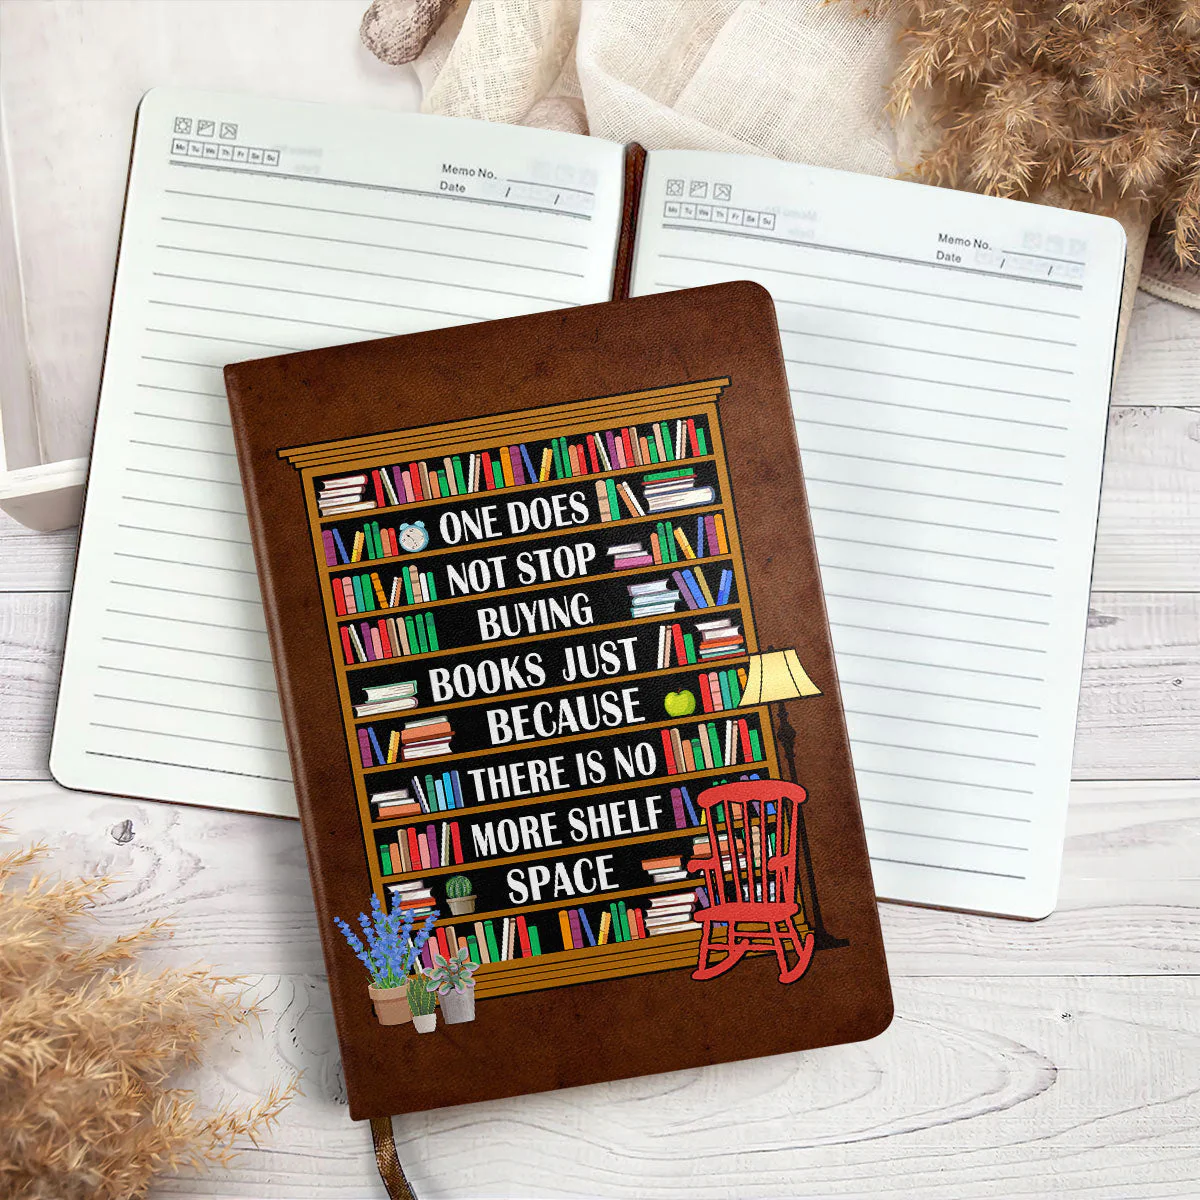 Mo Tu We Th Fr Sa Su
Memo No.
Date / /
Mo Tu We Th Fr Sa Su
Memo No.
Date / /
ONE DOES
NOT STOP
BUYING
BOOKS JUST
BECAUSE
THERE IS NO
MORE SHELF
SPACE